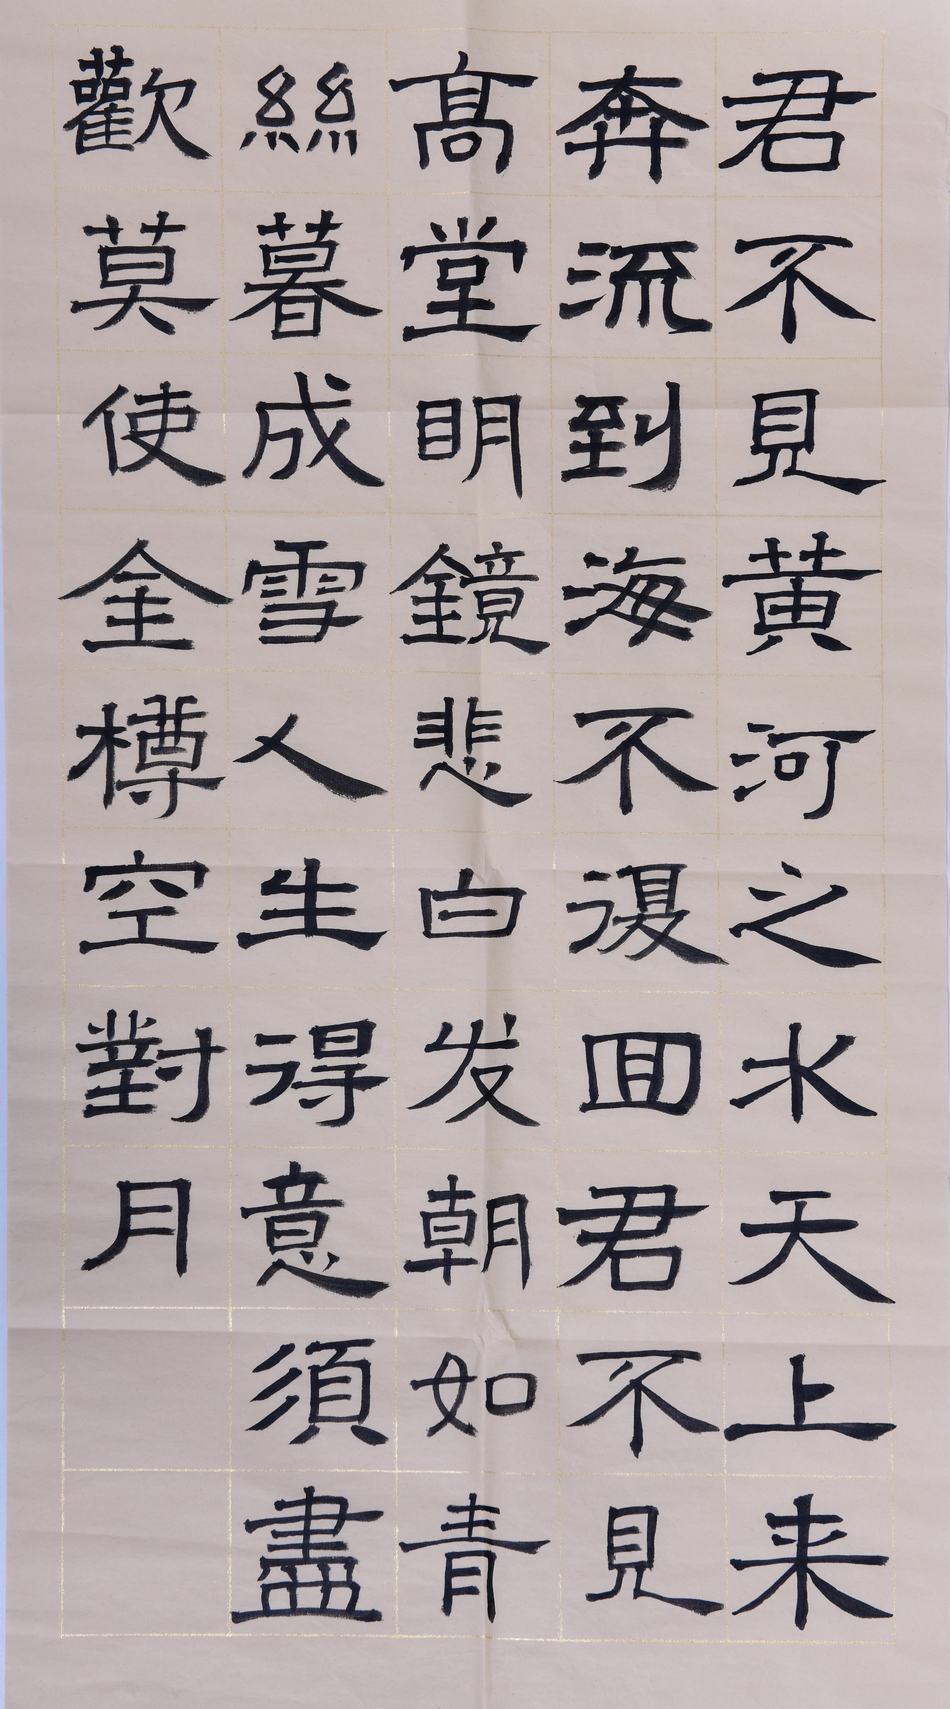 君不見黄河之水天上来
奔流到海不復回君不見
高堂明鏡悲白发朝如青
絲暮成雪人生得意須盡
歡莫使金樽空對月